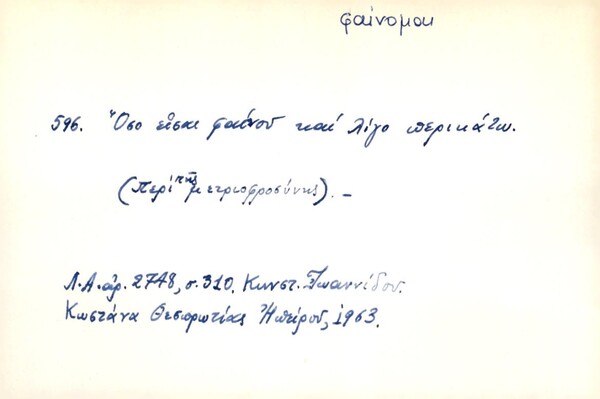 φαίνομαι
596. Ὅσο εἶσαι φαίνου καί λίγο περικάτω.
(Περί τῆς μετριοφροσύνης). –
Λ.Α. ἀρ. 2748, σ. 310. Κωνστ. Ἰωαννίδου.
Κωστάνα Θεσπρωτίας Ἠπείρου, 1963.